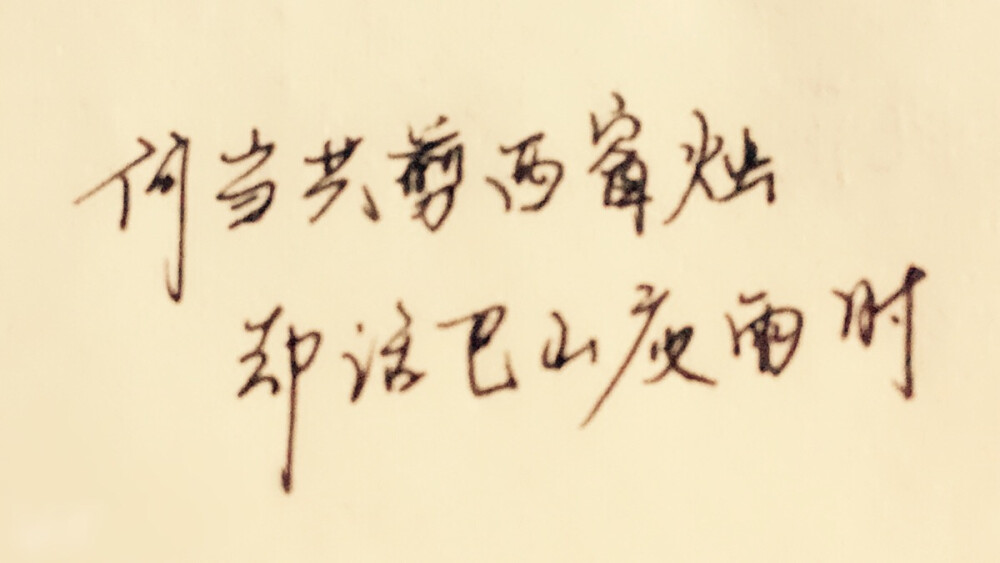 何当共剪西窗烛
却话巴山夜雨时